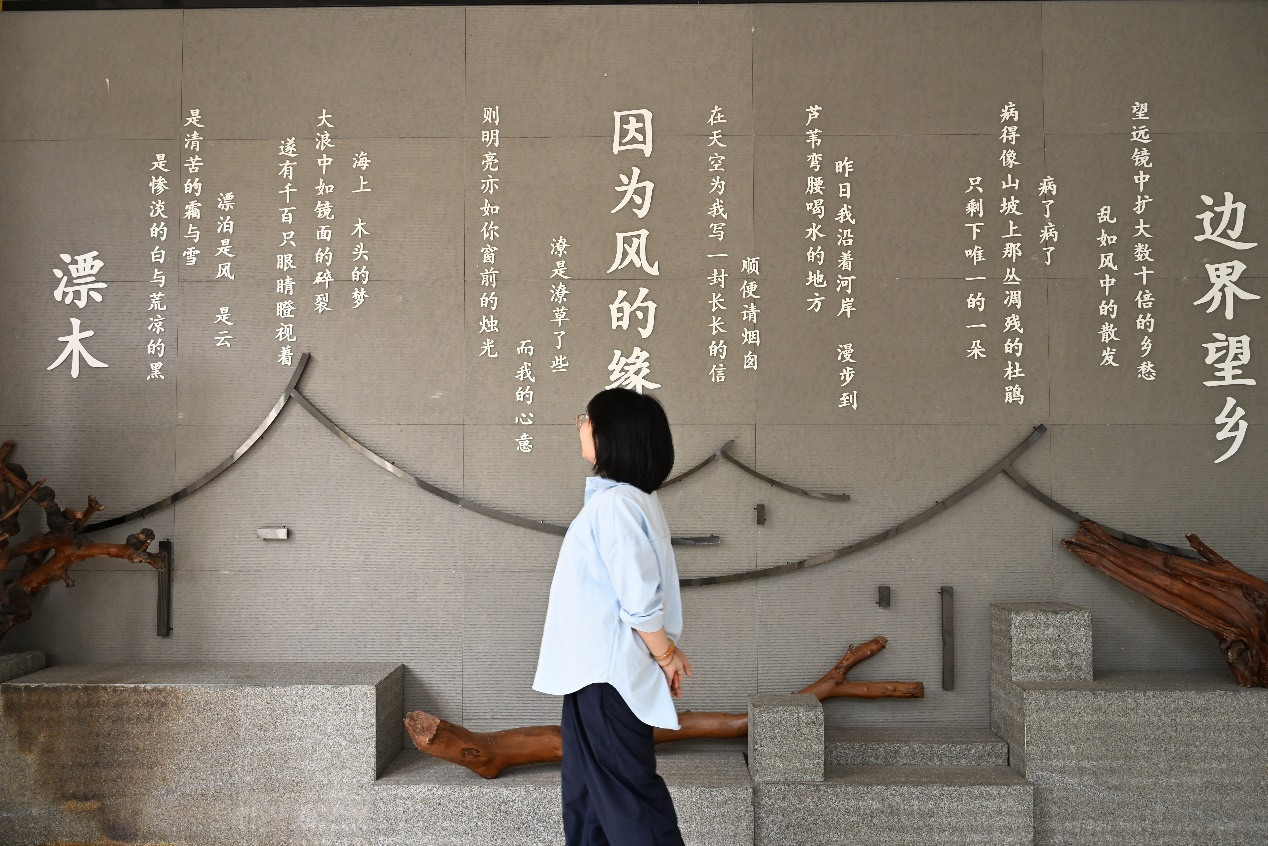 边界望乡
望远镜中扩大数十倍的乡愁
乱如风中的散发
病了病了
病得像山坡上那丛凋残的杜鹃
只剩下唯一的一朵
昨日我沿着河岸 漫步到
芦苇弯腰喝水的地方
顺便请烟囱
在天空为我写一封长长的信
因为风的缘
潦是潦草了些
而我的心意
则明亮亦如你窗前的烛光
海上 木头的梦
大浪中如镜面的碎裂
遂有千百只眼睛瞪视着
漂泊是风 是云
是清苦的霜与雪
是惨淡的白与荒凉的黑
漂木